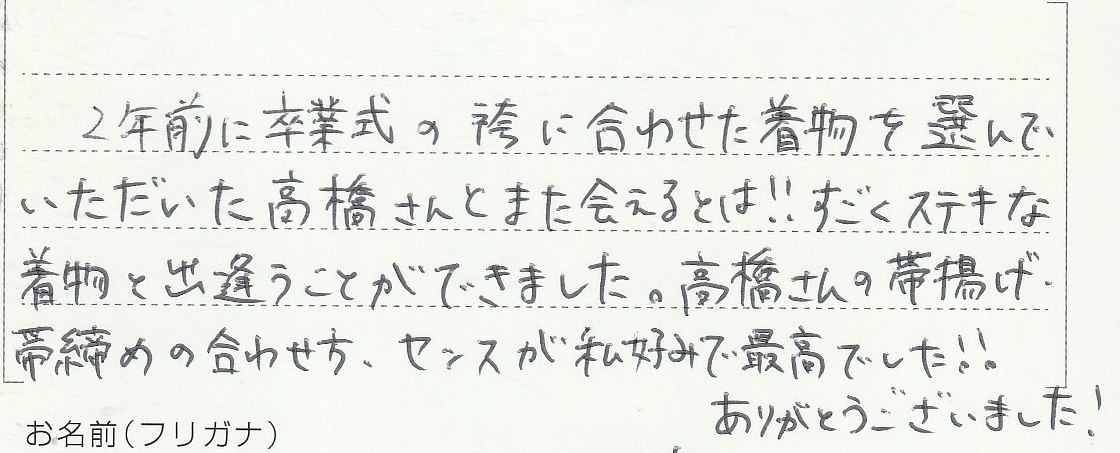 2年前に卒業式の袴に合わせた着物を選んで
いただいた高橋さんとまた会えるとは!!すごくステキな
着物と出逢うことができました。高橋さんの帯揚げ・
帯締めの合わせ方、センスが私好みで最高でした!!
ありがとうございました!
お名前(フリガナ)